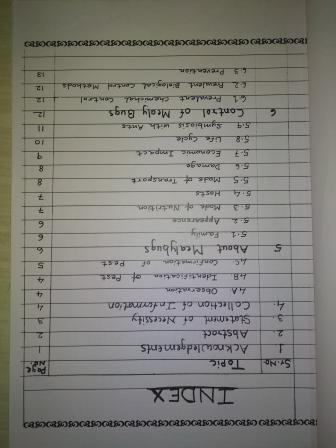 INDEX
Sr.No. Topic Page No.
1. Acknowledgements 1
2. Abstract 2
3. Statement of Necessity 3
4. Collection of Information 4
4A Observation 4
4B Identification of Pest 4
4C Confirmation of Pest 5
5 About Mealybugs 6
5.1 Family 6
5.2 Appearance 6
5.3 Mode of Nutrition 7
5.4 Hosts 7
5.5 Mode of Transport 8
5.6 Damage 8
5.7 Economic Impact 9
5.8 Life Cycle 10
5.9 Symbiosis with Ants 11
6 Control of Mealy Bugs 12
6.1 Prevalent Chemichal Control 12
6.2 Prevalent Biological Control Methods 12
6.3 Prevention 13